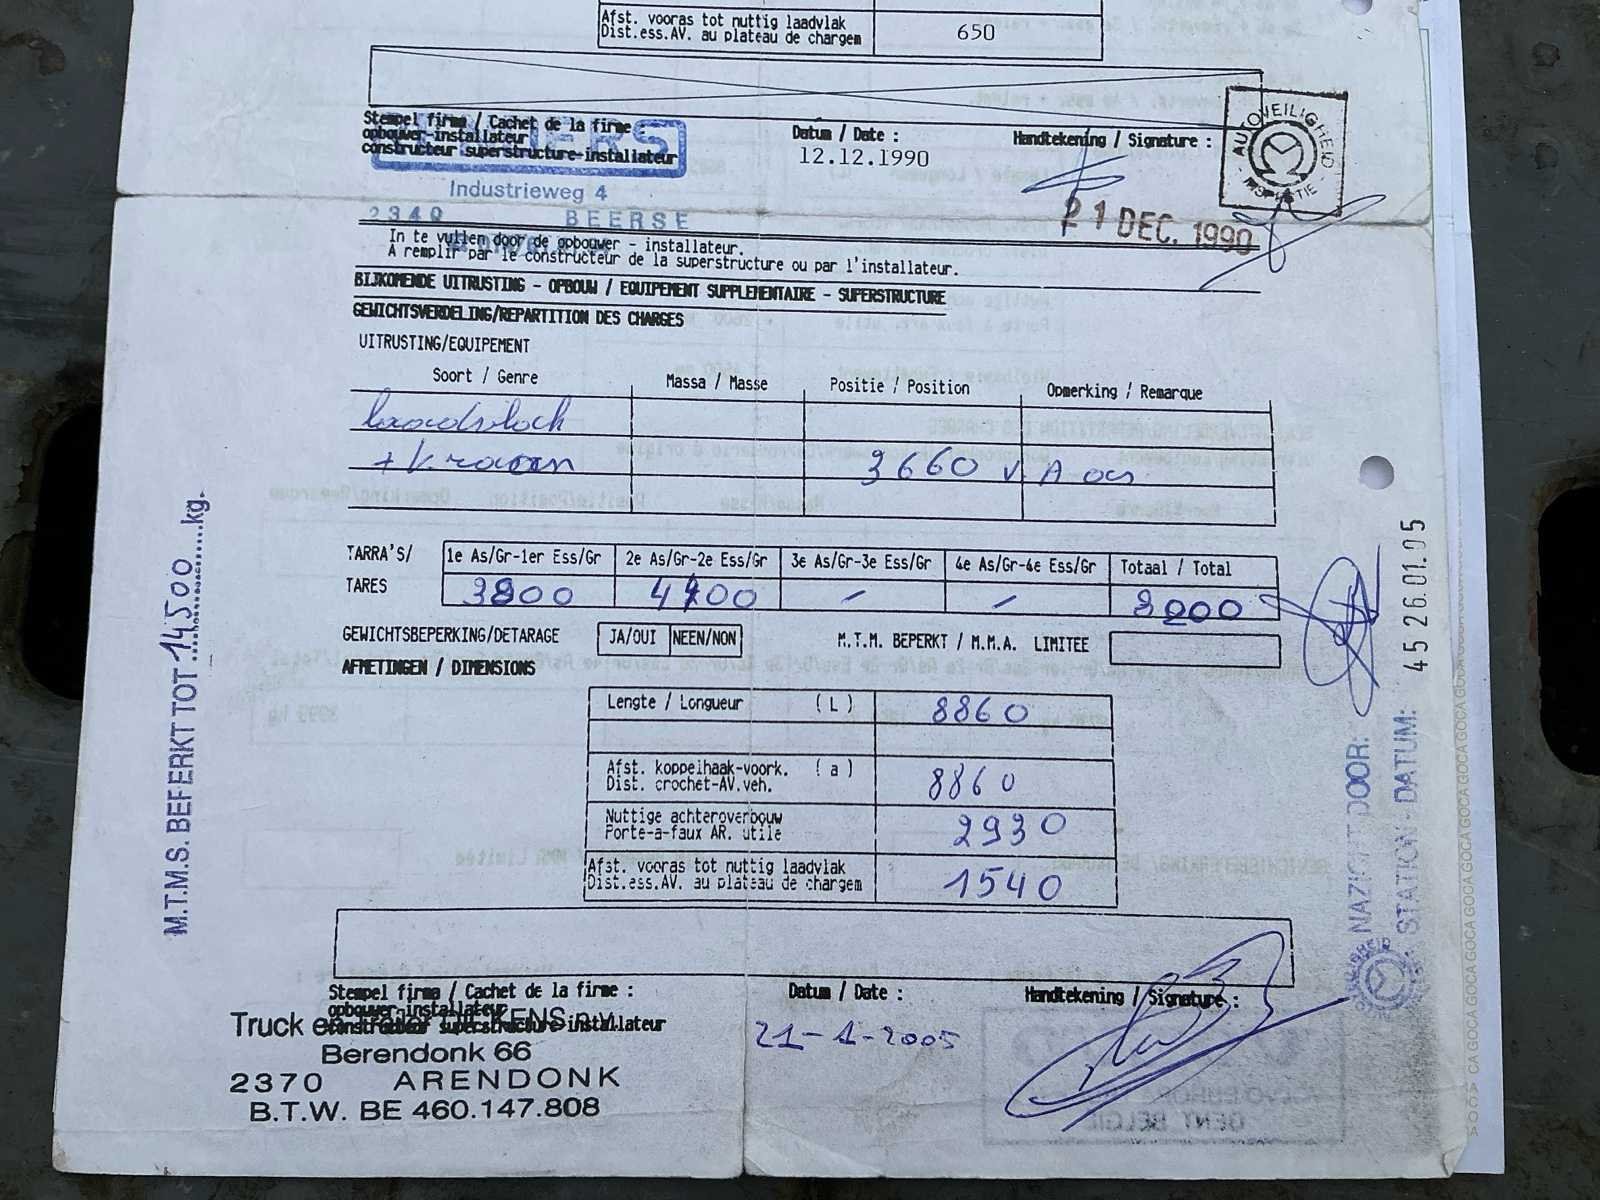 Afst. vooras tot nuttig laadvlak
Dist.ess.AV. au plateau de chargem
650
Stempel firma / Cachet de la firme
opbouwer-installateur
constructeur superstructure-installateur
Datum / Date :
12.12.1990
Handtekening / Signature :
AUTOVEILIGHEID
Industrieweg 4
2340 BEERSE
21 DEC. 1990
In te vullen door de opbouwer - installateur.
A remplir par le constructeur de la superstructure ou par l'installateur.
BIJKOMENDE UITRUSTING - OPBOUW / EQUIPEMENT SUPPLEMENTAIRE - SUPERSTRUCTURE
GEWICHTSVERDELING/REPARTITION DES CHARGES
UITRUSTING/EQUIPEMENT
Soort / Genre
Massa / Masse
Positie / Position
Opmerking / Remarque
+ kraan
3660 v A as
TARRA'S/
TARES
1e As/Gr-1er Ess/Gr
2e As/Gr-2e Ess/Gr
3e As/Gr-3e Ess/Gr
4e As/Gr-4e Ess/Gr
Totaal / Total
GEWICHTSBEPERKING/DETARAGE
JA/OUI
NEEN/NON
M.T.M. BEPERKT / M.M.A. LIMITEE
AFMETINGEN / DIMENSIONS
Lengte / Longueur (L)
8860
Afst. koppelhaak-voork. (a)
Dist. crochet-AV.veh.
8860
Nuttige achteroverbouw
Porte-a-faux AR. utile
2930
Afst. vooras tot nuttig laadvlak
Dist.ess.AV. au plateau de chargem
1540
Stempel firma / Cachet de la firme :
opbouwer-installateur
constructeur superstructure-installateur
Datum / Date :
Handtekening / Signature :
21-1-2005
Berendonk 66
2370 ARENDONK
B.T.W. BE 460.147.808
M.T.M.S. BEFERKT TOT 14500 kg.
NAZICHT DOOR:
STATION - DATUM: 45 26.01.05
GOCA GOCA GOCA GOCA GOCA GOCA GOCA